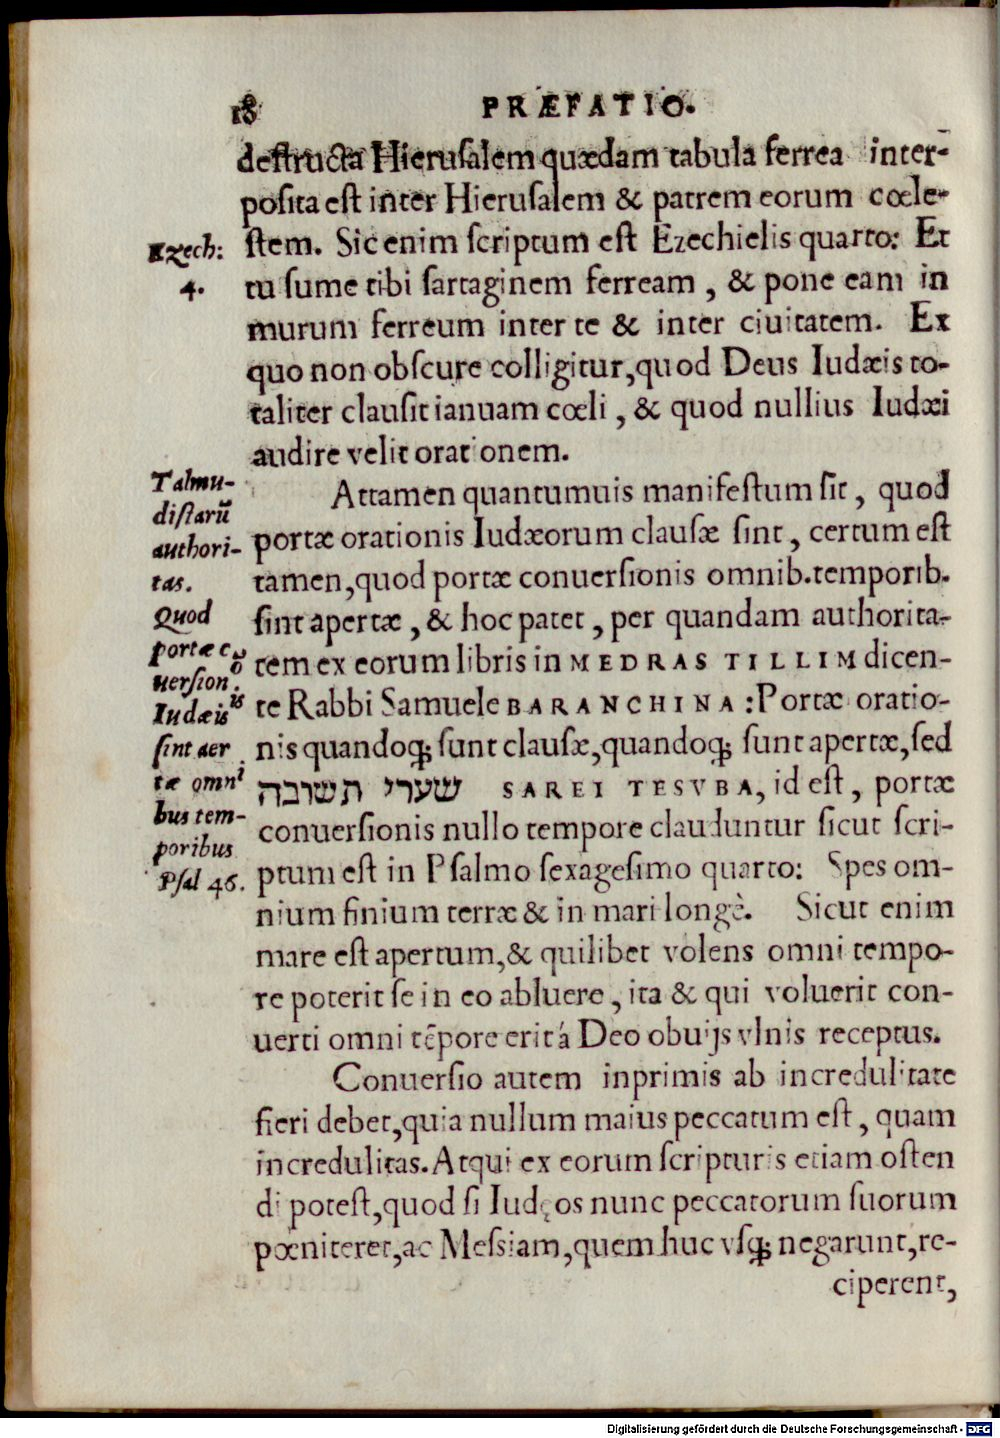 18 PRÆFATIO.
destructa Hierusalem quædam tabula ferrea inter-
posita est inter Hierusalem & patrem eorum cœle-
stem. Sic enim scriptum est Ezechielis quarto: Et
tu sume tibi sartaginem ferream, & pone eam in
murum ferreum inter te & inter ciuitatem. Ex
quo non obscure colligitur, quod Deus Iudæis to-
taliter clausit ianuam cœli, & quod nullius Iudæi
audire velit orationem.
Attamen quantumuis manifestum sit, quod
portæ orationis Iudæorum clausæ sint, certum est
tamen, quod portæ conuersionis omnib. temporib.
sint apertæ, & hoc patet, per quandam authorita-
tem ex eorum libris in MEDRAS TILLIM dicen-
te Rabbi Samuele BARANCHINA: Portæ oratio-
nis quandoq; sunt clausæ, quandoq; sunt apertæ, sed
שערי תשובה SAREI TESVBA, id est, portæ
conuersionis nullo tempore clauduntur sicut scri-
ptum est in Psalmo sexagesimo quarto: Spes om-
nium finium terræ & in mari longè. Sicut enim
mare est apertum, & quilibet volens omni tempo-
re poterit se in eo abluere, ita & qui voluerit con-
uerti omni tẽpore erit á Deo obuijs vlnis receptus.
Conuersio autem inprimis ab incredulitate
fieri debet, quia nullum maius peccatum est, quam
incredulitas. Atqui ex eorum scripturis etiam osten
di potest, quod si Iudęos nunc peccatorum suorum
pœniteret, ac Messiam, quem huc vsq; negarunt, re-
ciperent,
Ezech:
4.
Talmu-
distarũ
authori-
tas.
Quod
portæ cõ
uersion.
Iudæis
sint aer
tæ omni
bus tem-
poribus
Psal 46.
Digitalisierung gefördert durch die Deutsche Forschungsgemeinschaft - DFG